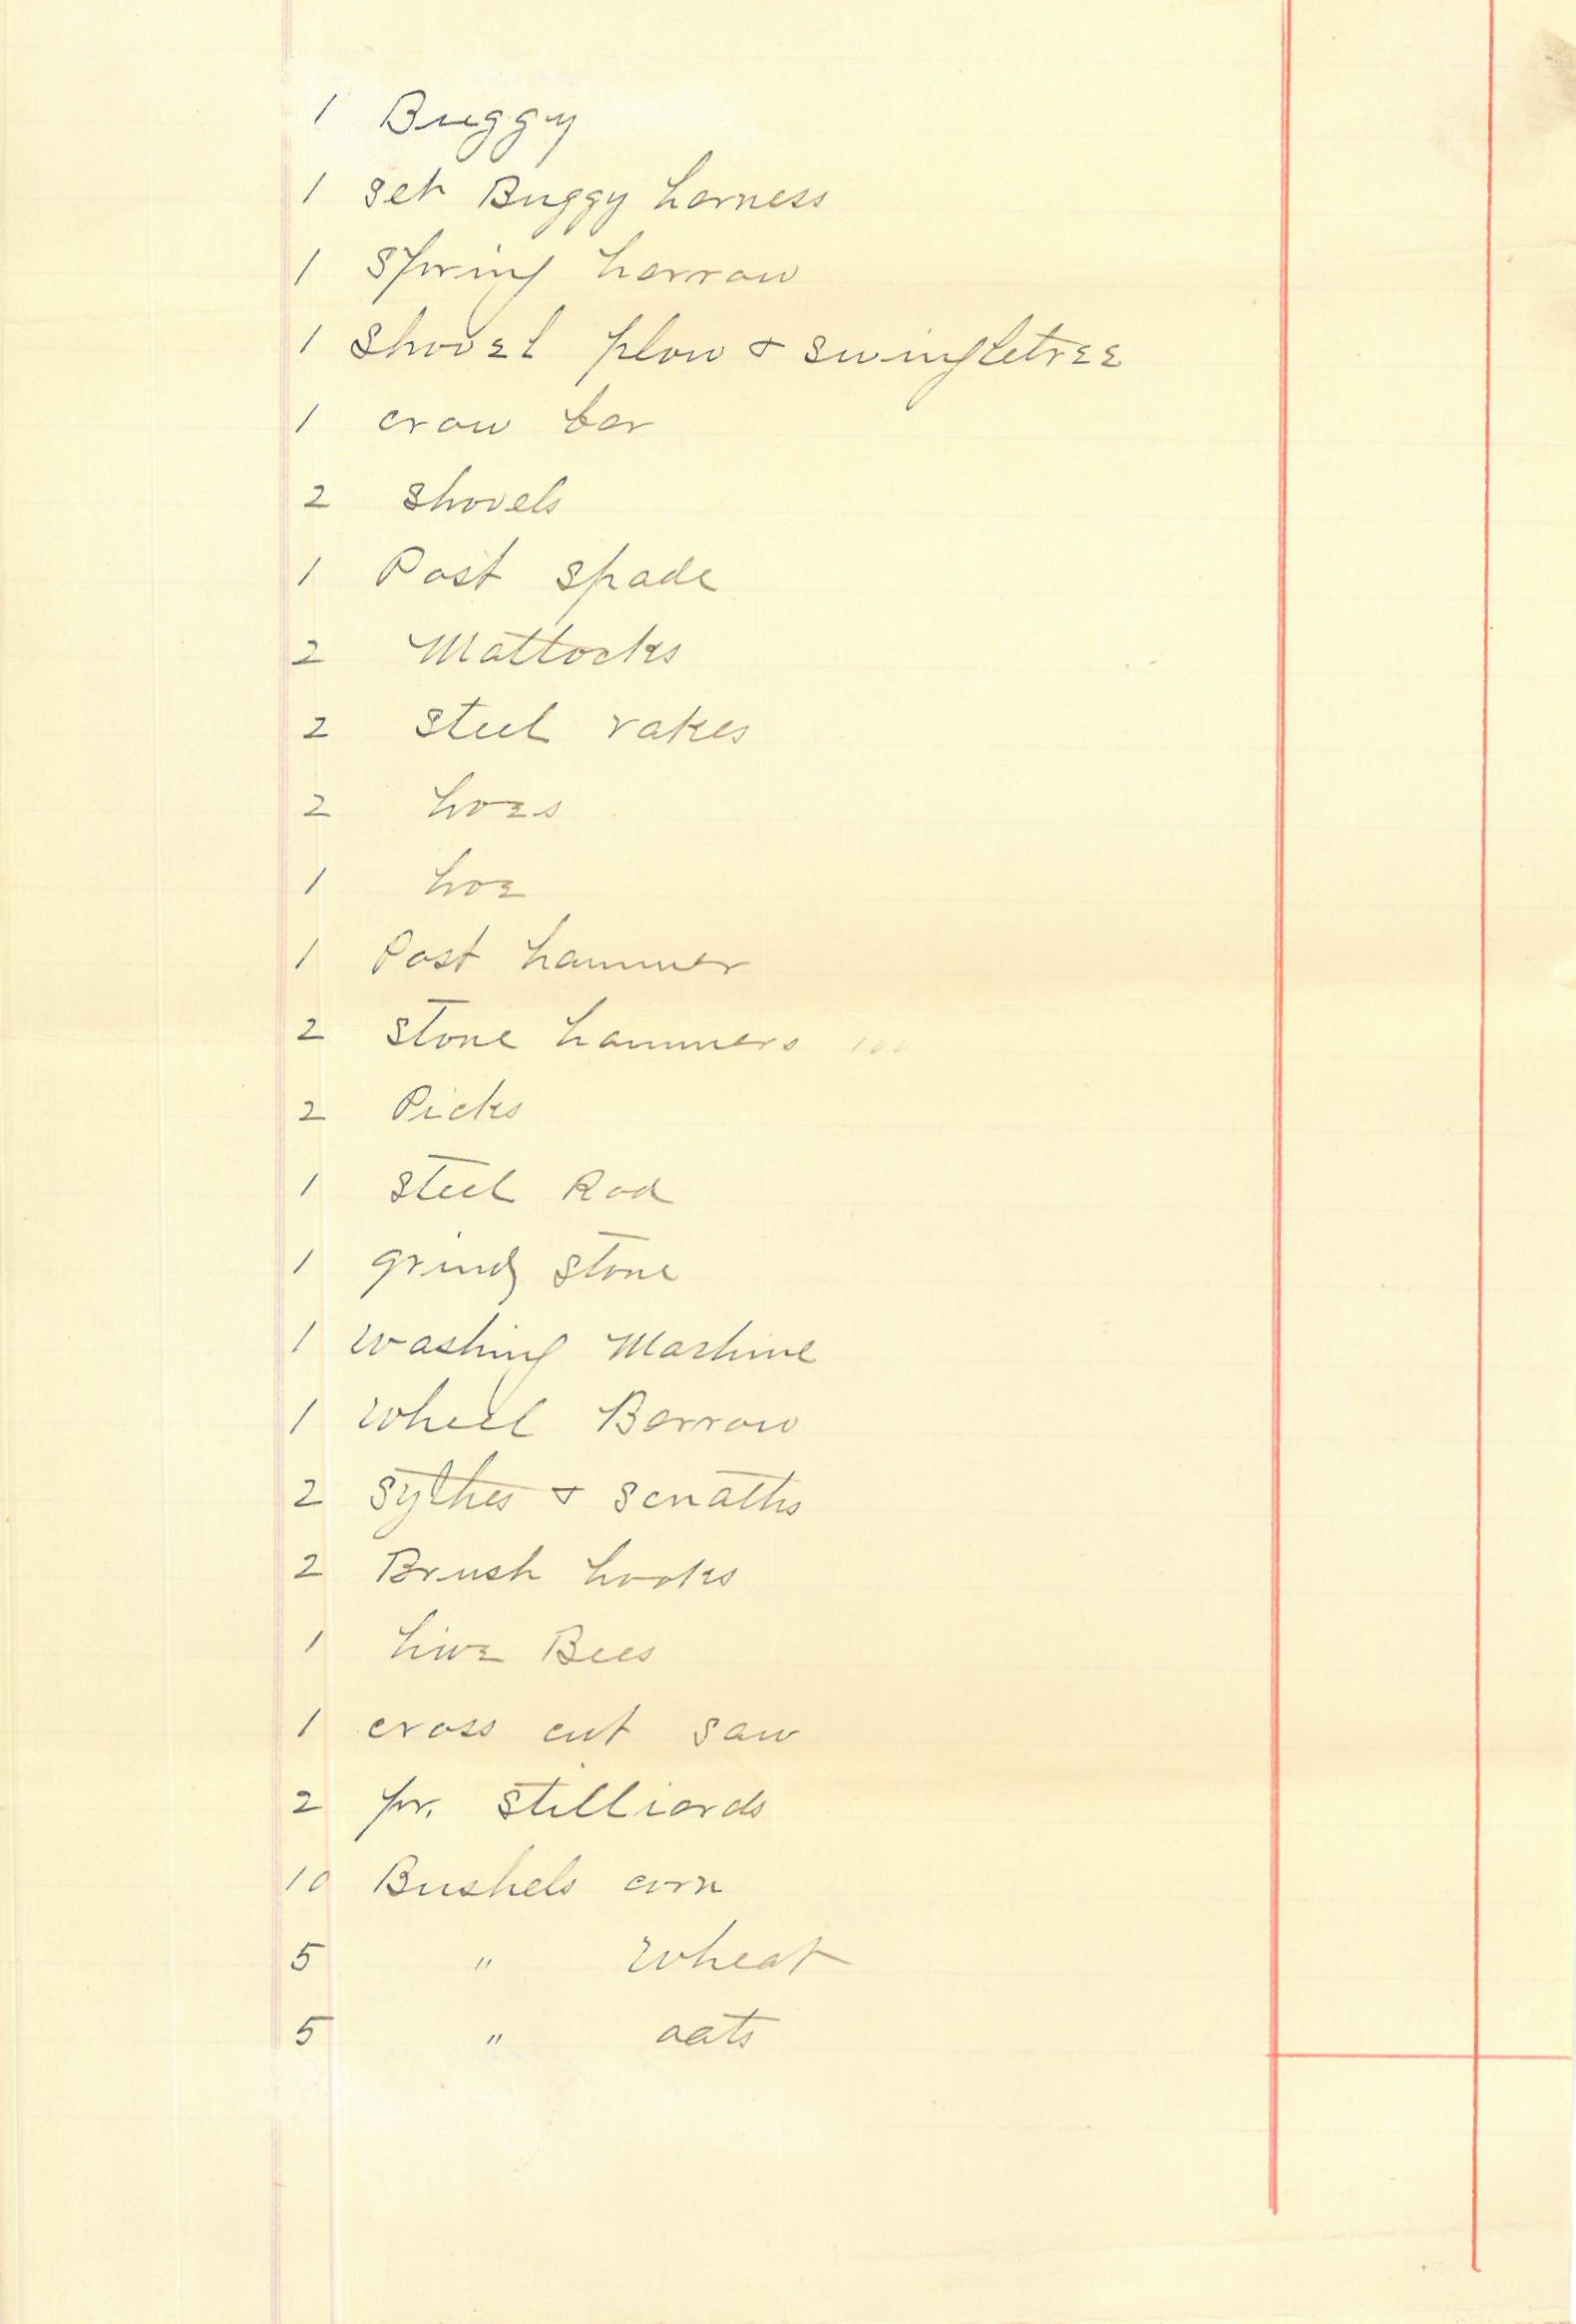 1 Buggy
1 set Buggy harness
1 Spring harrow
1 Shovel plow & swingletree
1 crow bar
2 Shovels
1 Post spade
2 Mattocks
2 Steel rakes
2 hoes
1 hoe
1 Post hammer
2 Stone hammers 100
2 Picks
1 Steel Rod
1 grind stone
1 washing Machine
1 Wheel Barrow
2 Sythes & Snaths
2 Brush hooks
1 hive Bees
1 cross cut saw
2 pr. Stilliards
10 Bushels corn
5 " Wheat
5 " oats